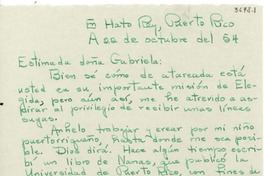 3698-1
En Hato Rey, Puerto Rico
A 22 de octubre del 54
Estimada doña Gabriela:
Bien sé como de atareada está
usted en su importante misión de Ele-
gida, pero aún así, me he atrevido a as-
pirar al privilegio de recibir unas líneas
suyas.
Anhelo trabajar y crear por mi niño
puertorriqueño, hasta donde me sea po-
sible. Dios dirá. Hace algún tiempo escri-
bí un libro de Nanas, que publicó la
Universidad de Puerto Rico, con fines de